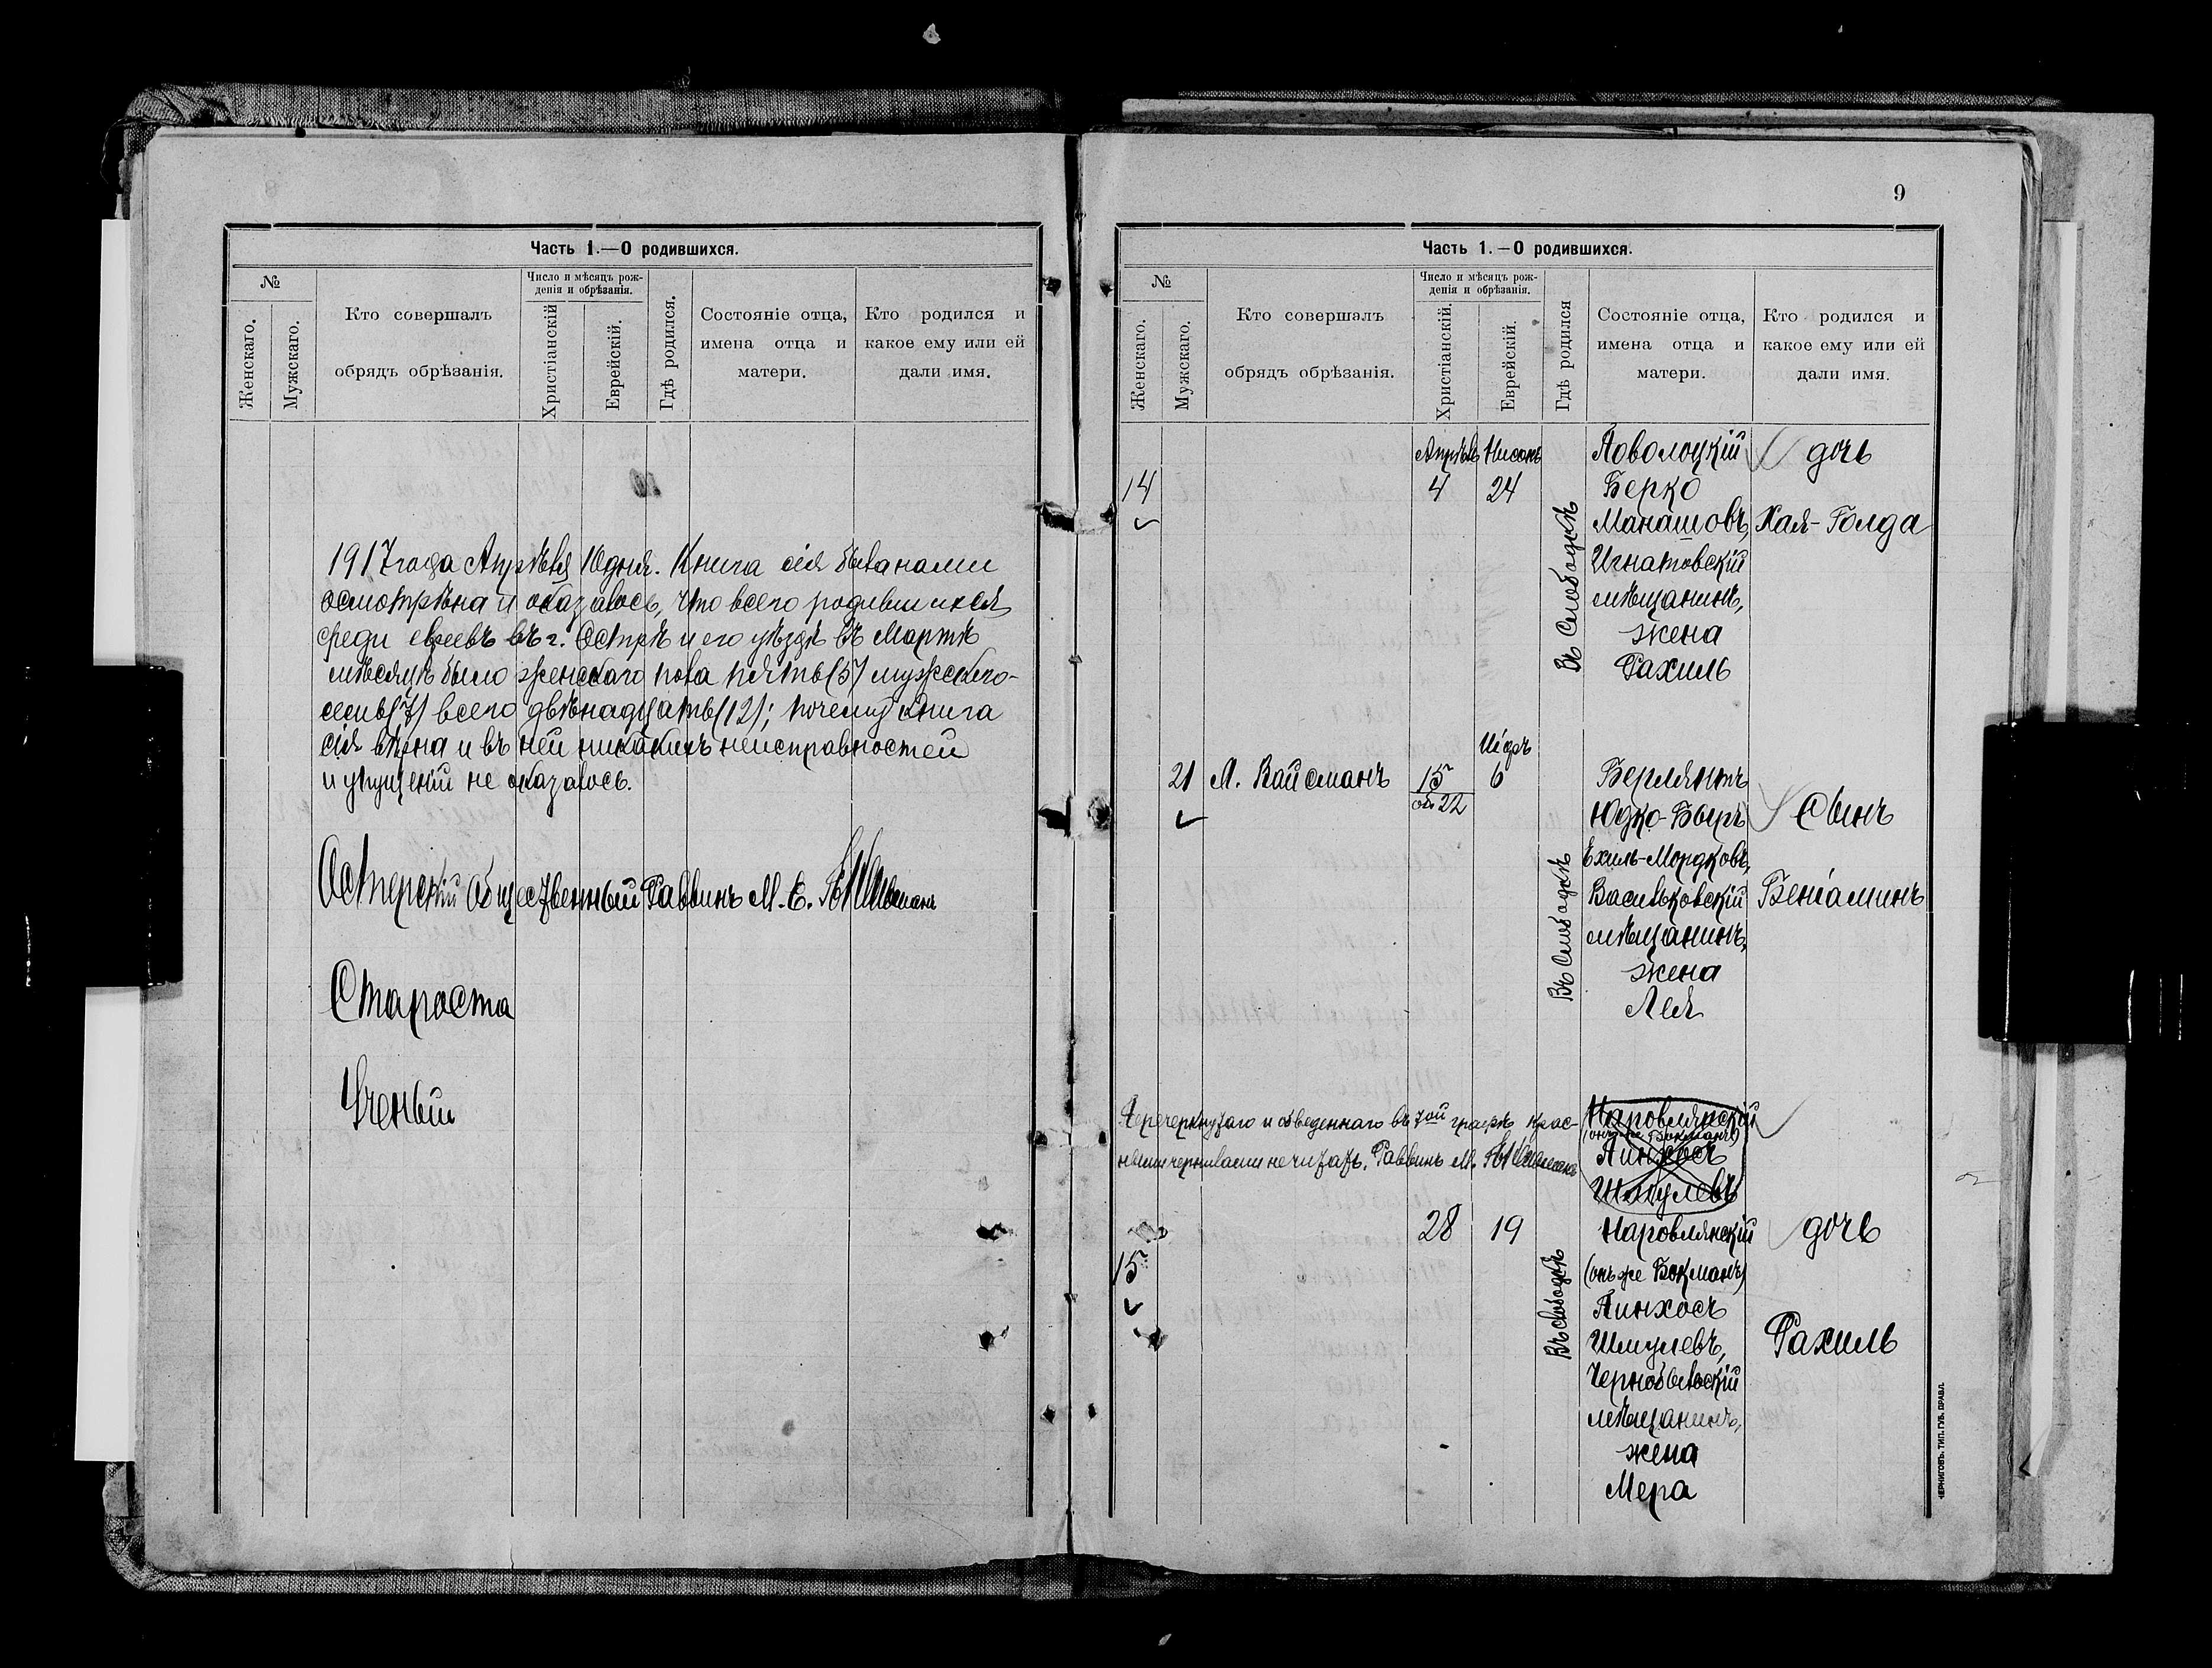 Часть 1.—О родившихся.
№
Женскаго.
Мужскаго.
Кто совершалъ
обрядъ обрѣзанія.
Число и мѣсяцъ рож-
денія и обрѣзанія.
Христіанскій
Еврейскій.
Гдѣ родился.
Состояніе отца,
имена отца и
матери.
Кто родился и
какое ему или ей
дали имя.
1917 года Апрѣля 10 дня. Книга сія была нами
осмотрѣна и оказалось, что всего родившихся
среди евреевъ въ г. Острѣ и его уѣздѣ въ Мартѣ
мѣсяцѣ было женскаго пола пять (5) мужского-
семь (7) всего двѣнадцать (12); почему книга
сія вѣрна и въ ней никакихъ неисправностей
и упущеній не оказалось.
Остерскій Общественный Раввинъ М. Е.
Староста
Ученый
9
Часть 1.—О родившихся.
№
Женскаго.
Мужскаго.
Кто совершалъ
обрядъ обрѣзанія.
Число и мѣсяцъ рож-
денія и обрѣзанія.
Христіанскій.
Еврейскій.
Гдѣ родился
Состояніе отца,
имена отца и
матери.
Кто родился и
какое ему или ей
дали имя.
Апрѣль Нисонъ Поволоцкій дочь
14 4 24 Берко
Въ Слободкѣ
Манашовъ, Хая-Голда
Игнатовскій
мѣщанинъ,
жена
Рахиль
Иіоръ
21 М. Вайсманъ 15 6 Берлянтъ
об 22 Юдко-Беръ Сынъ
Въ Слободкѣ
Ехиль-Мордковъ,
Васильковскій Беніаминъ
мѣщанинъ,
жена
Лея
Перечеркнутаго и обведеннаго въ 7ой графѣ крас- Наровлянскій
(онъ же Бокманъ)
ными чернилами не читать. Раввинъ М. Пинхосъ
Шмулевъ
28 19 Наровлянскій дочь
15 (онъ же Бокманъ)
Въ Слободкѣ
Пинхосъ
Шмулевъ, Рахиль
Чернобыльскій
мѣщанинъ,
жена
Мера
ЧЕРНИГОВЪ. ТИП. ГУБ. ПРАВЛ.